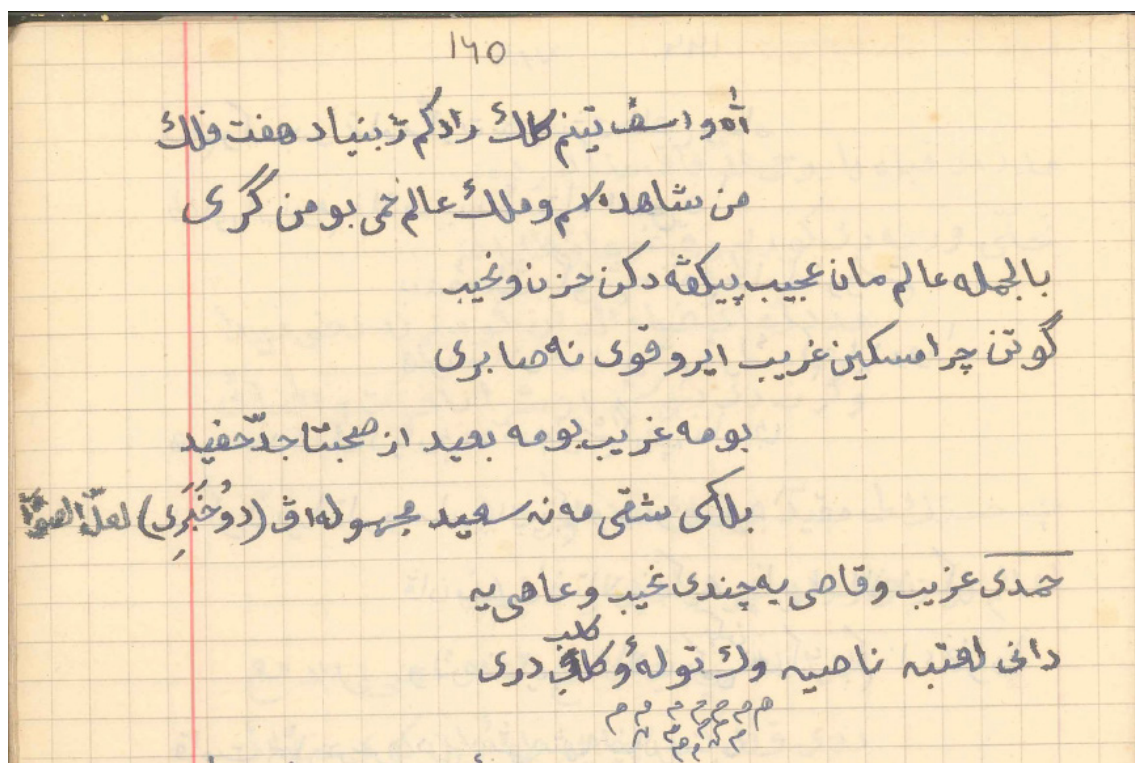 ١٦٥
آه و اسف تینم کلك رادکم ژ بنیاد هفت فلك
من شاهده و ملك عالم خمی بو من گری
بالجمله عالم مان عجیب پیکڤه دکن حزن و نحیب
گوتن چرا مسکین غریب ایرو قوی نه صابری
بومه غریب بومه بعید از صحبتا جدّ حفید
بلکی شقی مه نه سعید مجهوله اڤ (دوُخَبَرِی) لعلّ
حمدی غریب و قاصی یه چندی نحیب و عاصی یه
دانی ناصیه وك توله ٔو کلب دری